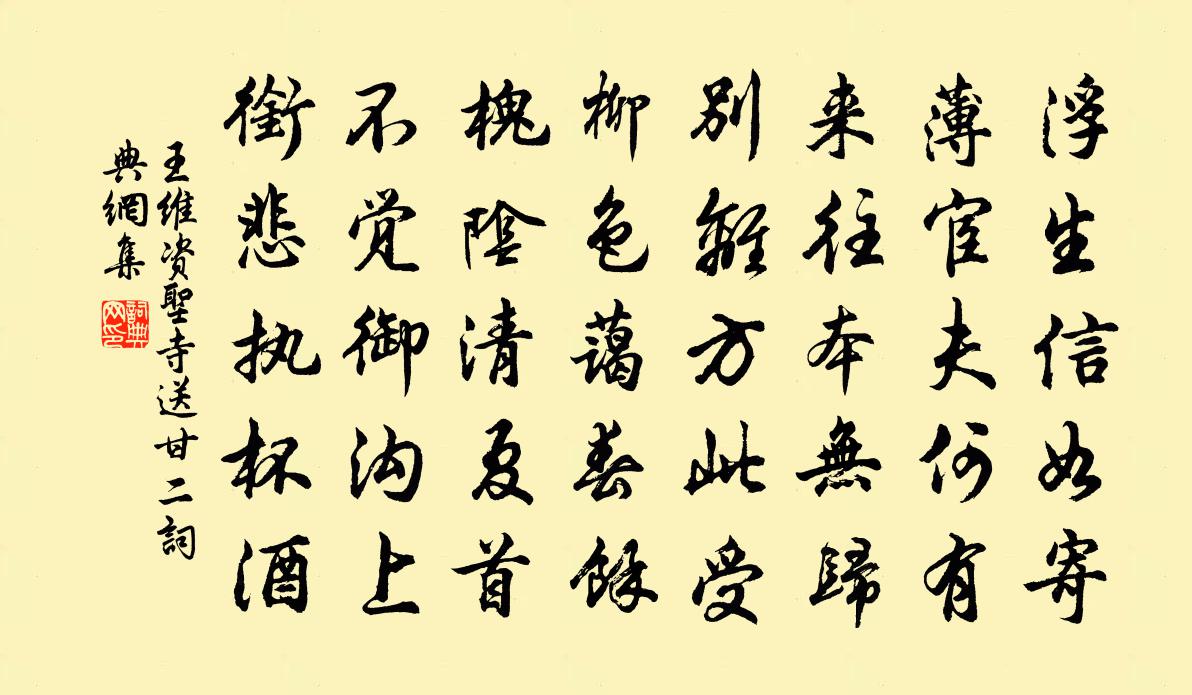 浮生信如寄
薄宦夫何有
来往本無歸
別離方此受
柳色藹春餘
槐陰清夏首
不觉御沟上
銜悲执杯酒
王维资聖寺送甘二詞
典網集
詞典
网印